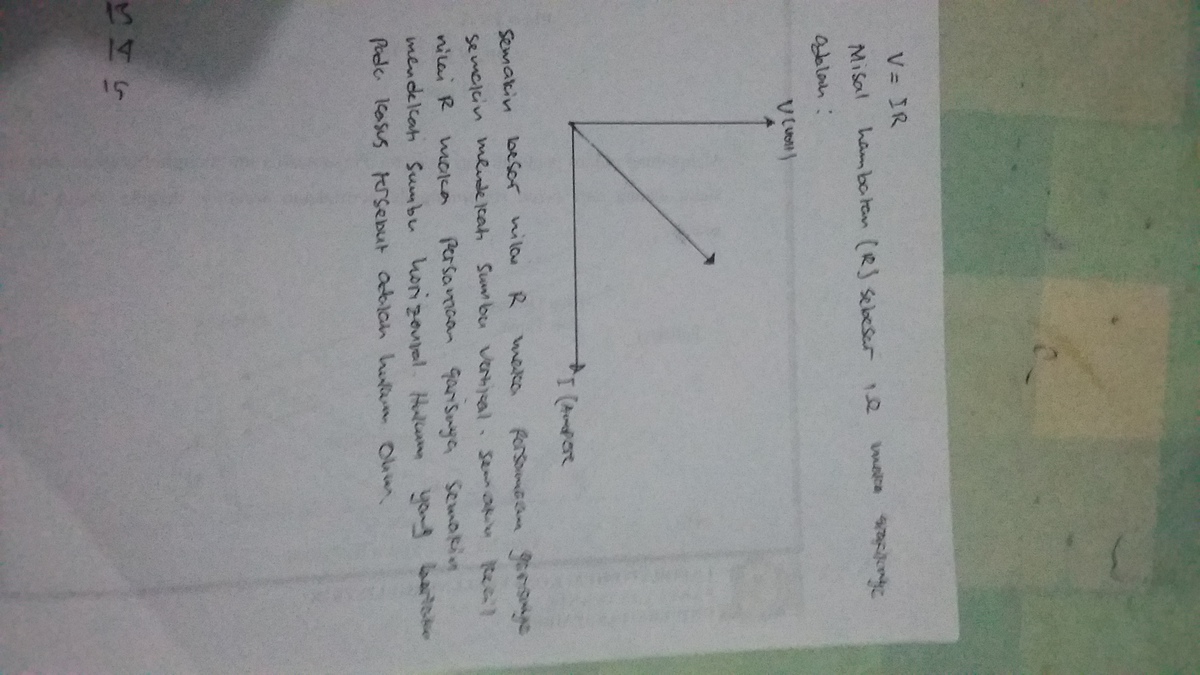 V = IR
Misal hambatan (R) sebesar 1 Ω maka grafiknya
adalah :
V (Volt)
I (Ampere
Semakin besar nilai R maka persamaan garisnya
semakin mendekati sumbu vertikal. semakin kecil
nilai R maka persamaan garisnya semakin
mendekati sumbu horizontal. Hukum yang berlaku
pada kasus tersebut adalah hukum Ohm.